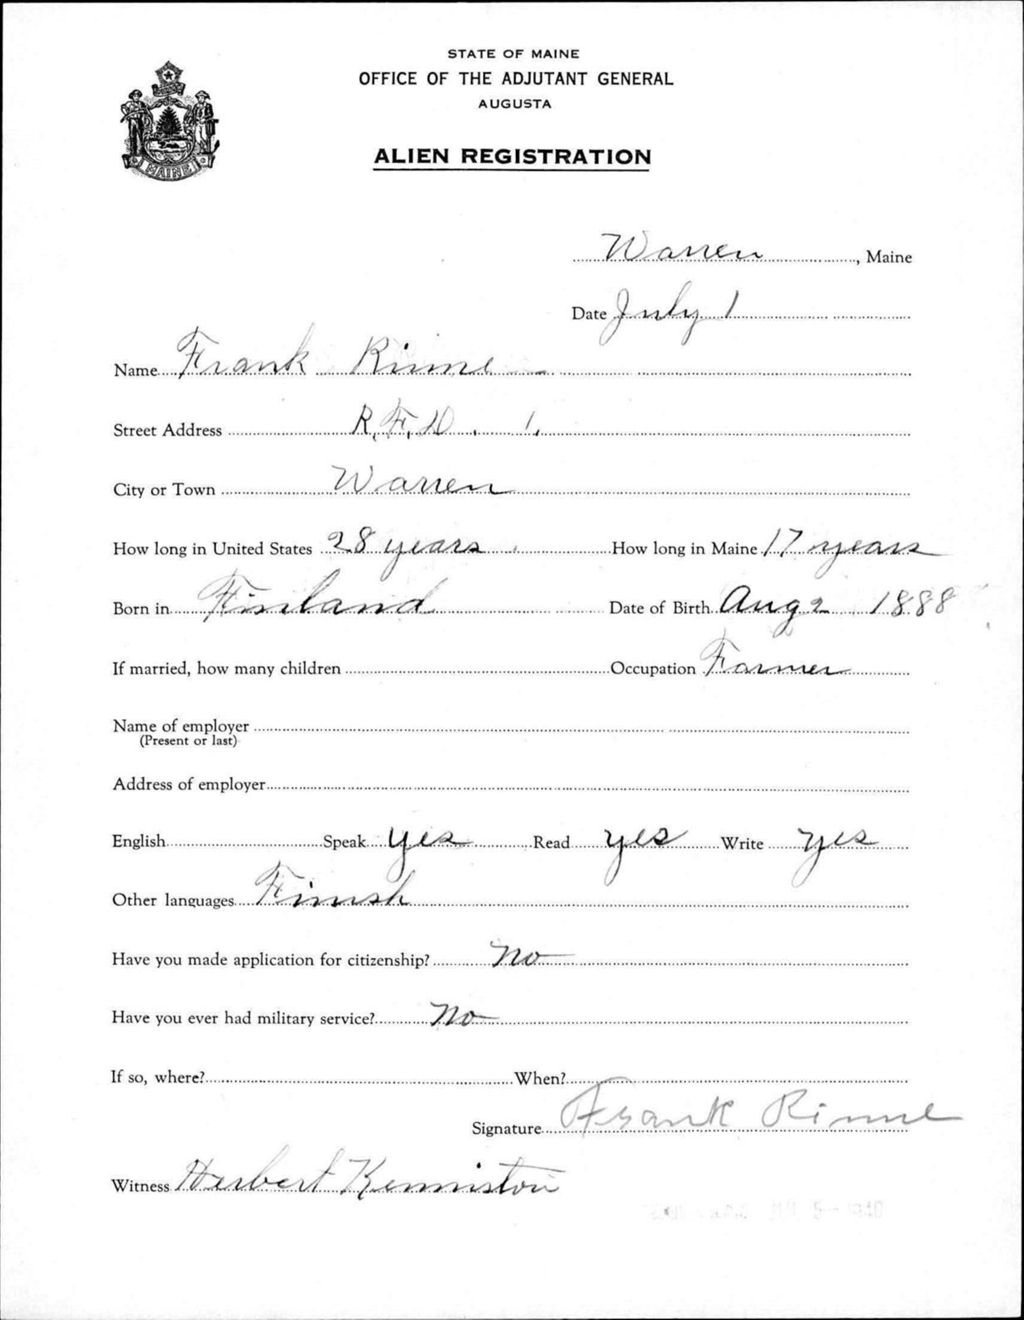 STATE OF MAINE
OFFICE OF THE ADJUTANT GENERAL
AUGUSTA
ALIEN REGISTRATION
MAINE
Warren, Maine
Date July 1
Name Frank Rinne
Street Address R.F.D. 1.
City or Town Warren
How long in United States 28 years How long in Maine 17 years
Born in Finland Date of Birth Aug 2 1888
If married, how many children Occupation Farmer
Name of employer
(Present or last)
Address of employer
English Speak Yes Read yes Write yes
Other languages Finnsh
Have you made application for citizenship? No
Have you ever had military service? No
If so, where? When?
Signature Frank Rinne
Witness Herbert Kenniston